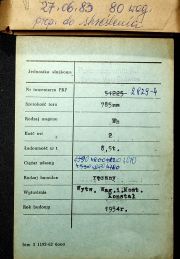 27.06.83 80 wag.
prop. do skreślenia
Jednostka służbowa
Nr inwentarza PKP 54225 2829-4
Szerokość toru 785mm
Rodzaj wagonu Wm
Ilość osi 2
Ładowność w t. 8,5t.
Ciężar własny
Rodzaj hamulca ręczny
Wytwórnia Wytw. Wag.i.Most. Konstal
Rok budowy 1954r.